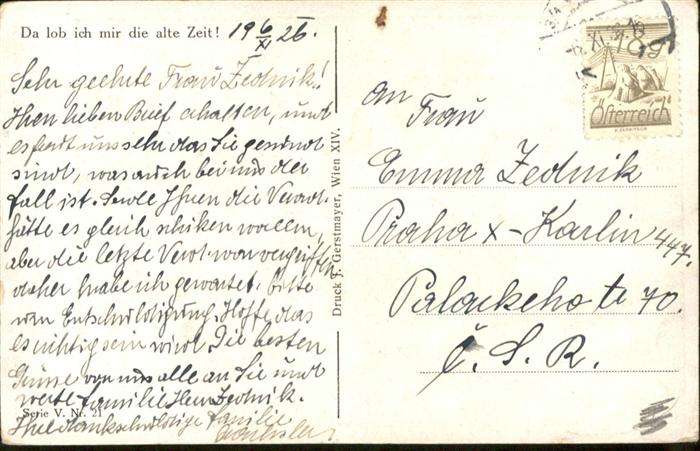 Da lob ich mir die alte Zeit! 19 6/XI 26.
Sehr geehrte Frau Zednik!
Ihen lieben Brief erhalten, und
es freut uns sehr das Sie gesund
sind, was auch bei uns der
fall ist. Ihnen die
hätte es gleich schiken wollen,
aber die letzte war vergriffen
daher habe ich gewartet. Bitte
um Entschuldigung. Hoffe, das
es richtig sein wird. Die besten
Grüsse von uns alle an Sie und
werte familie Herr Zednik.
Serie V. Nr. 21
Ihre dankschuldige familie
Druck J. Gerstmayer, Wien XIV.
An
Frau
Emma Zednik
Praha X - Karlin 447.
Palackeho tř 70.
Č. S. R.
10g
Österreich